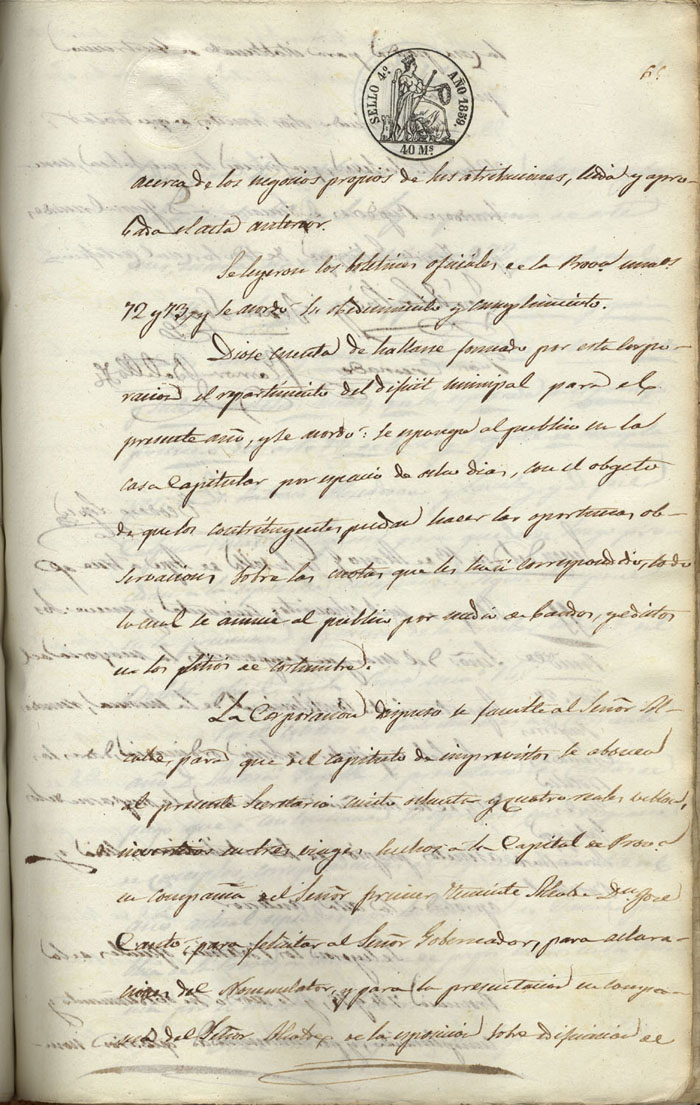 SELLO 4.º AÑO 1859.
40 M.s
acerca de los negocios propios de sus atribuciones, leida y apro-
bada el acta anterior.
Se leyeron los boletines oficiales de la Prov.a num.s
72 y 73, y se acordó su obedecimiento y cumplimiento.
Diose cuenta de hallarse formado por esta Corpo-
racion el repartimiento del dificit municipal para el
presente año, y se acordó: se esponga al publico en la
casa Capitular por espacio de ocho dias, con el obgeto
de que los contribuyentes puedan hacer las oportunas ob-
servaciones sobre las cuotas que les haci correspondido, todo
lo cual se anuncie al publico por medio de bandos, y edictos
en los sitios de costumbre.
La Corporacion dispuso se faculte al Señor Al-
calde, para que del capitulo de imprevistos se abonen
al presente Secretario ciento ochenta y cuatro reales vellon,
invertidos en tres viages hechos a la Capital de Prov.a
en compañia del Señor primer Teniente Alcalde D.n José
Canto, para felicitar al Señor Gobernador, para aclara-
ciones del Nomenclator, y para la presentacion en
del Señor Alcalde, de la esposicion sobre de